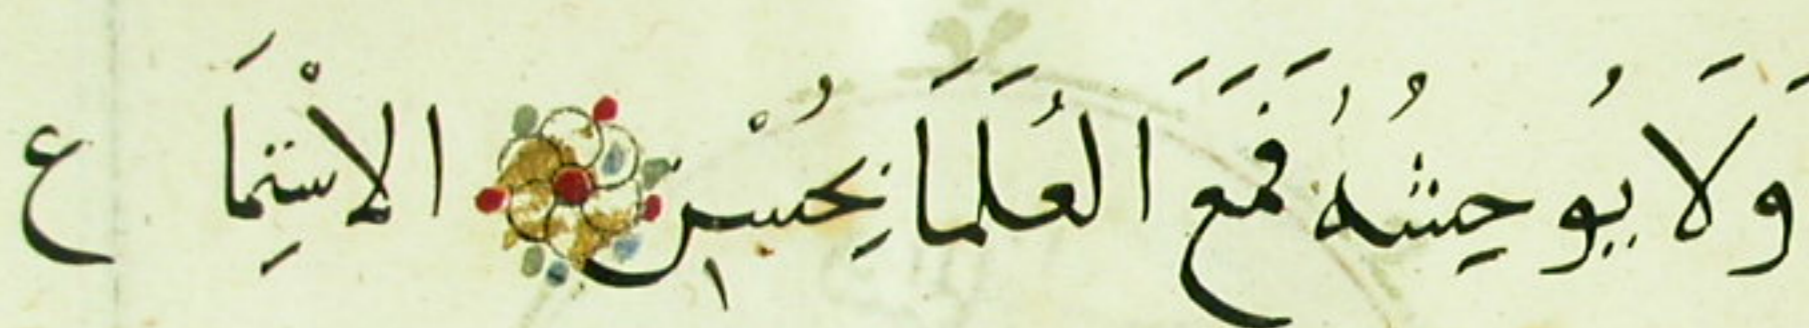 وَلَا يُوحِشُهُ فَمَعَ العُلَمَا بِحُسْنِ الاسْتِمَاع